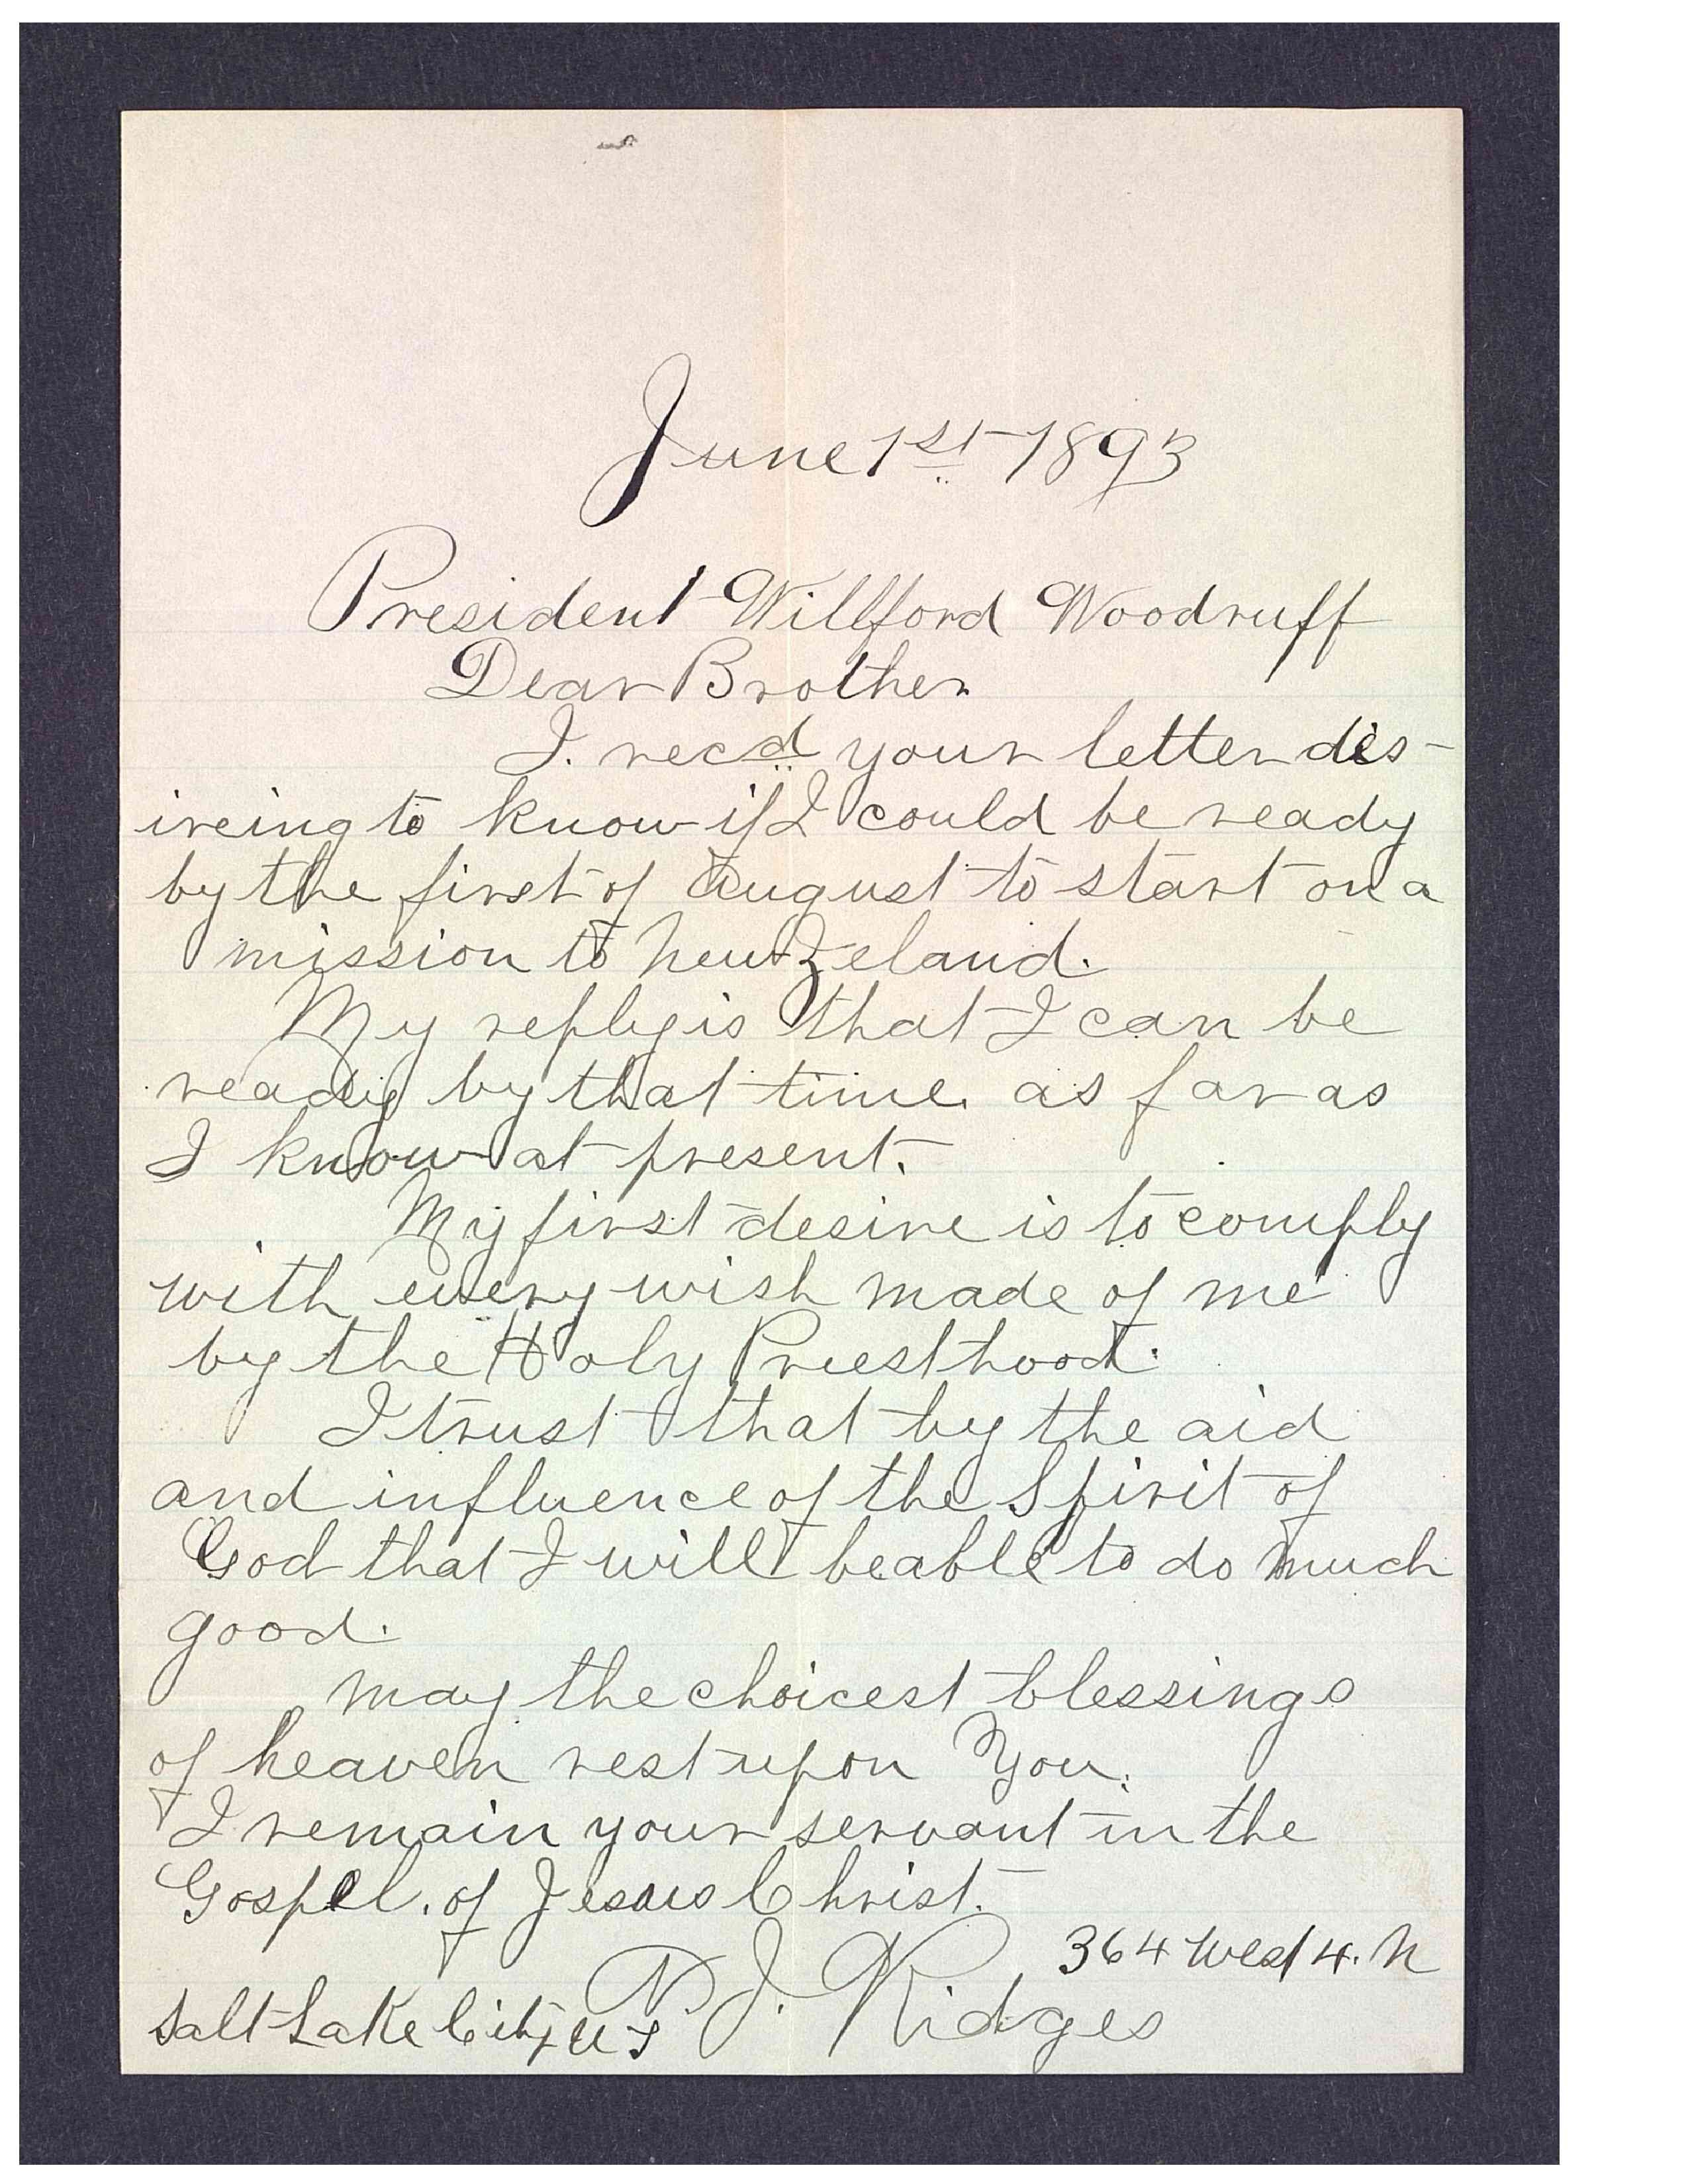 June 1st 1893
President Willford Woodruff
Dear Brother
I. recd your letter des-
ireing to know if I could be ready
by the first of August to start on a
mission to New Zeland.
My reply is that I can be
ready by that time. as far as
I know at present.
My first desire is to comply
with every wish made of me
by the Holy Priesthood.
I trust that by the aid
and influence of the Spirit of
God that I will be able to do much
good.
may the choicest blessings
of heaven rest upon You.
I remain your servant in the
Gospel. of Jesus Christ.
364 West 4. N
Salt Lake City U T J. Ridges